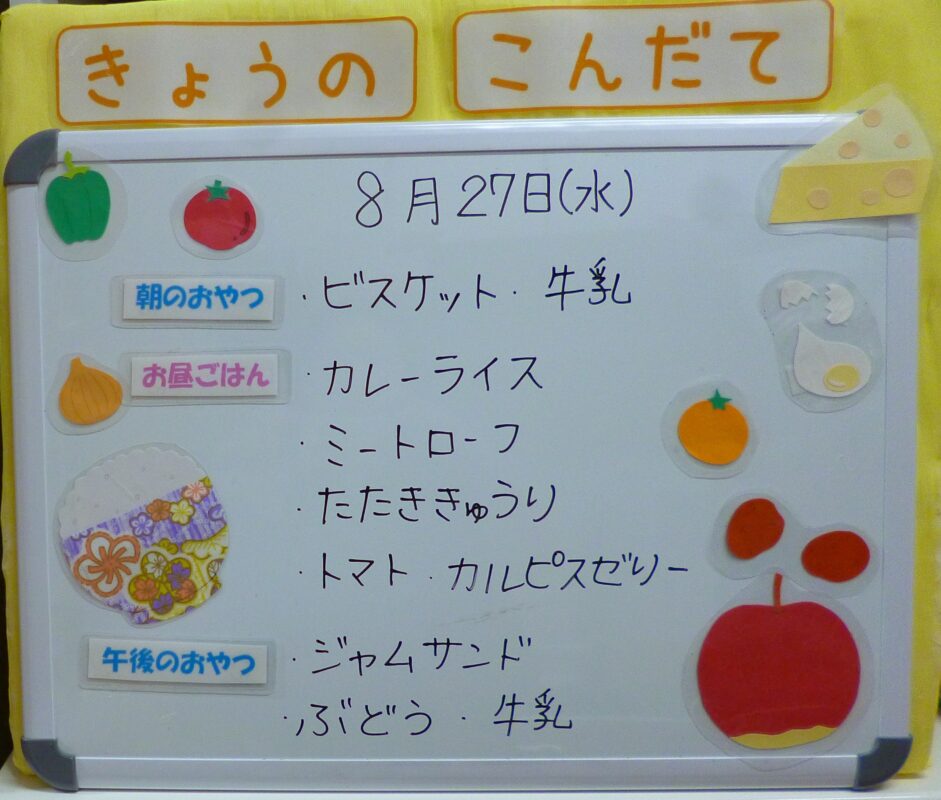 きょうの こんだて
8月27日(水)
朝のおやつ ・ビスケット・牛乳
お昼ごはん ・カレーライス
・ミートローフ
・たたききゅうり
・トマト・カルピスゼリー
午後のおやつ ・ジャムサンド
・ぶどう・牛乳